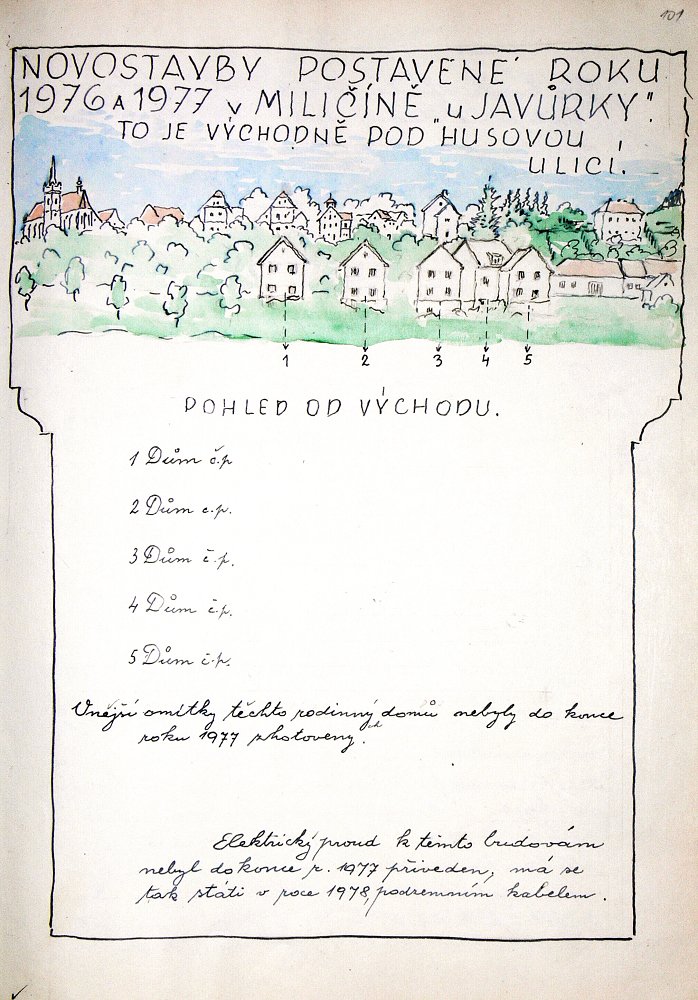 101
NOVOSTAVBY POSTAVENÉ ROKU
1976 A 1977 V MILIČÍNĚ „U JAVŮRKY“.
TO JE VÝCHODNĚ POD HUSOVOU
ULICÍ.
1 2 3 4 5
POHLED OD VÝCHODU.
1 Dům č.p
2 Dům č.p.
3 Dům č.p.
4 Dům č.p.
5 Dům č.p.
Vnější omítky těchto rodinných domů nebyly do konce
roku 1977 zhotoveny.
Elektrický proud k těmto budovám
nebyl do konce r. 1977 přiveden, má se
tak státi v roce 1978, podzemním kabelem.